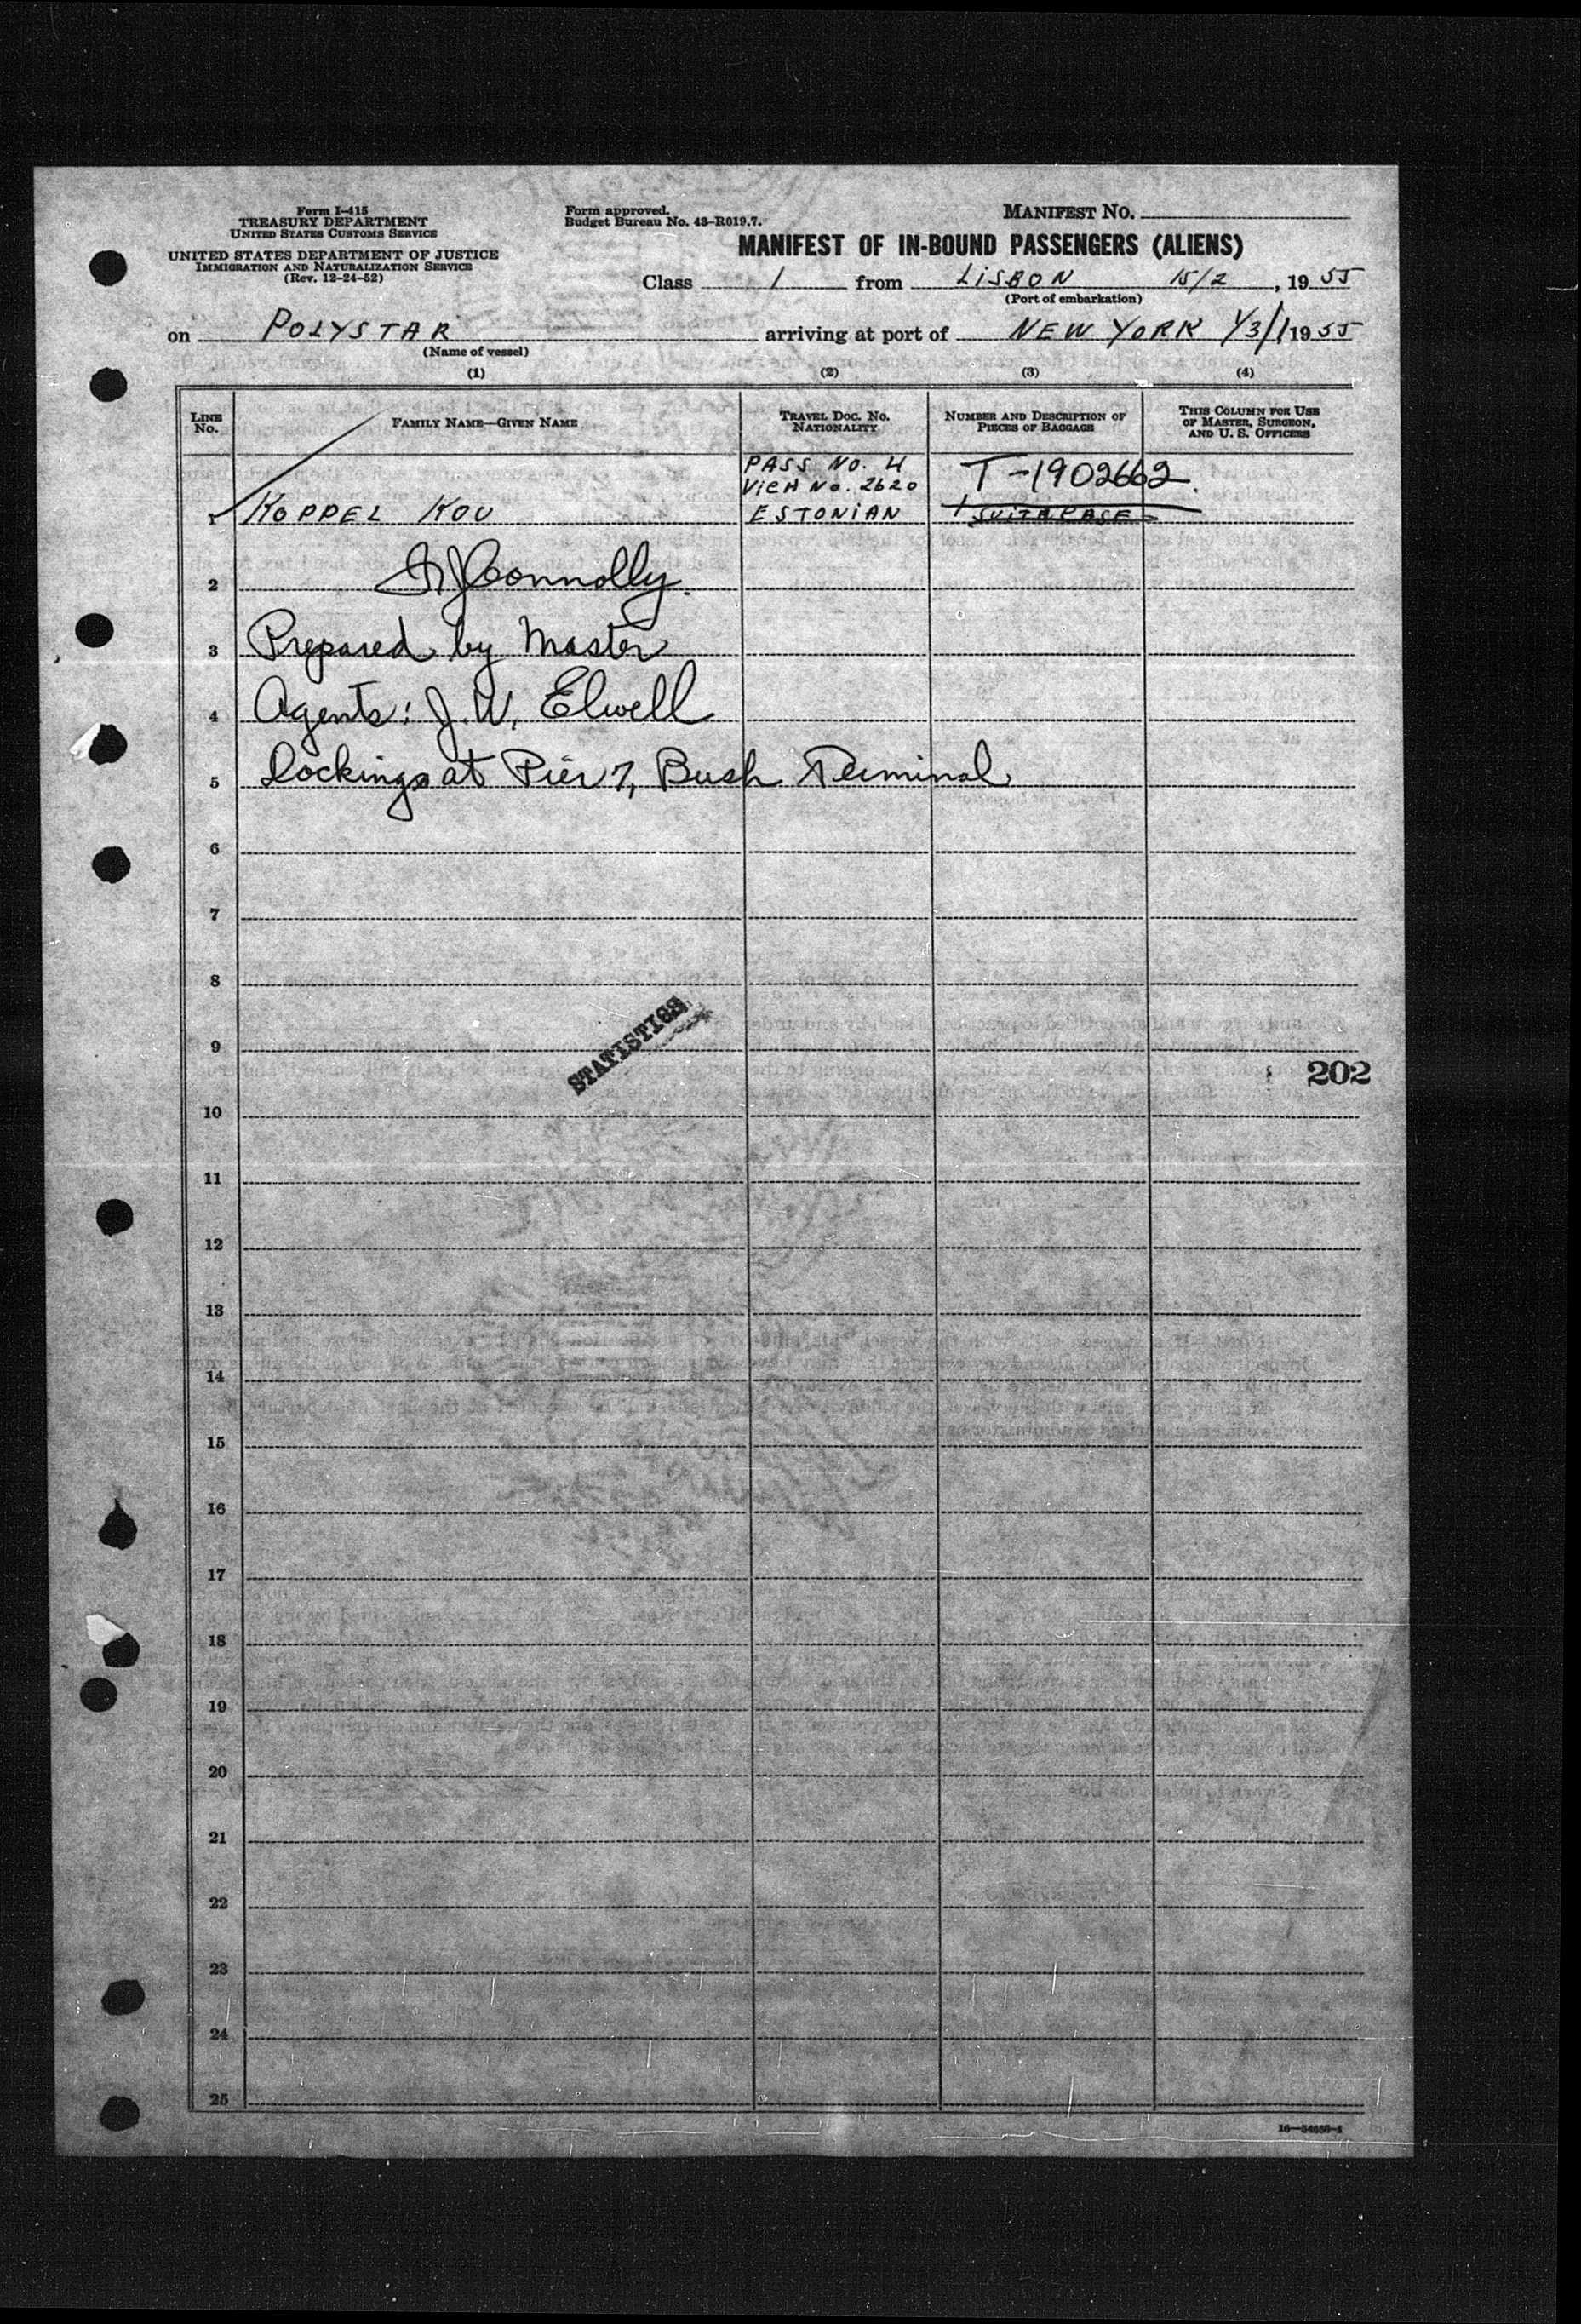 Form I-415
TREASURY DEPARTMENT
UNITED STATES CUSTOMS SERVICE
UNITED STATES DEPARTMENT OF JUSTICE
IMMIGRATION AND NATURALIZATION SERVICE
(Rev. 12-24-52)
Form approved.
Budget Bureau No. 43-R019.7.
MANIFEST NO.
MANIFEST OF IN-BOUND PASSENGERS (ALIENS)
Class 1 from LISBON 15/2, 1955
(Port of embarkation)
on POLYSTAR arriving at port of NEW YORK 1/3/1955
(Name of vessel)
(1) (2) (3) (4)
LINE No. FAMILY NAME—GIVEN NAME TRAVEL DOC. NO. NATIONALITY NUMBER AND DESCRIPTION OF PIECES OF BAGGAGE THIS COLUMN FOR USE OF MASTER, SURGEON, AND U. S. OFFICERS
PASS No. 4 T-1902662.
No. 2620
1 KOPPEL KOU ESTONIAN 1 SUITCASE
2 Connolly
3 Prepared by Master
4 Agents: J. W. Elwell
5 Docking at Pier 7, Bush Terminal
6
7
8
STATISTICS
9
202
10
11
12
13
14
15
16
17
18
19
20
21
22
23
24
25